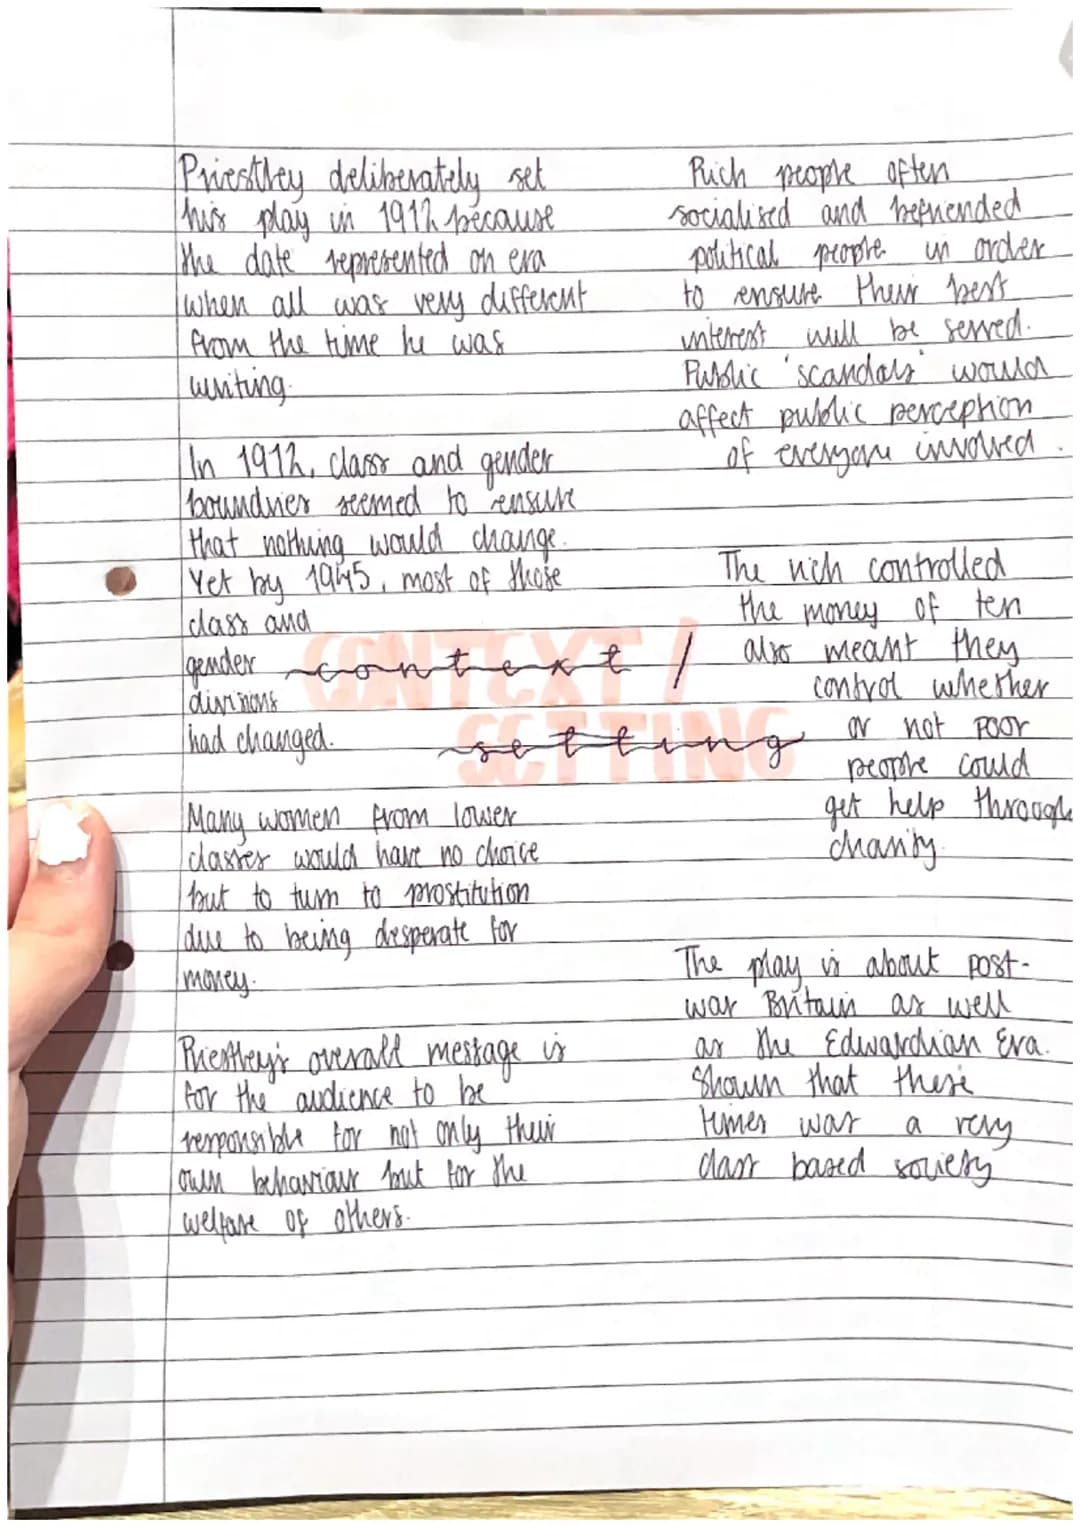 Priestley deliberately set
his play in 1912 because
the date represented an era
when all was very different
from the time he was
writing.
In 1912, class and gender
boundries seemed to ensure
that nothing would change.
Yet by 1945, most of those
class and
gender
divisions
had changed.
Many women from lower
classes would have no choice
but to turn to prostitution
due to being desperate for
money.
Priestley's overall message is
for the audience to be
responsible for not only their
own behaviour but for the
welfare of others.
CONTEXT /
SETTING
context /
setting
Rich people often
socialised and befriended
political people in order
to ensure their best
interest will be served.
Public 'scandals' would
affect public perception
of everyone involved.
The rich controlled
the money of ten
also meant they
control whether
or not poor
people could
get help through
charity.
The play is about post-
war Britain as well
as the Edwardian Era.
Shown that these
times was a very
class based society